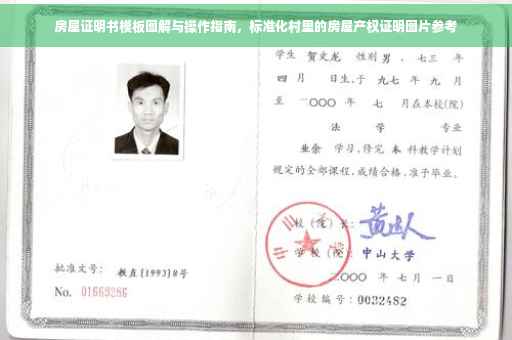 房屋证明书模板图解与操作指南，标准化村里的房屋产权证明图片参考
学生 贺文龙 性别男，七三 年
四 月 日生，于 九七 年 九 月
至 二〇〇〇 年 七 月在本校(院)
法 学 专业
业余 学习，修完 本 科教学计划
规定的全部课程，成绩合格，准予毕业。
校 (院) 长：
学 校 (院)：中山大学
二〇〇〇 年 七 月 一 日
学校编号：0032482
批准文号：教直[1993]8号
No. 01669286